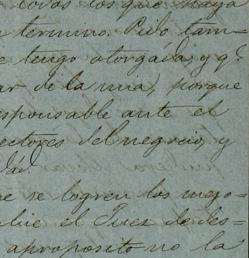 todos los que haya
termino. Pido tam-
e tengo otorgada, y q.e
ar de la mia, porque
esponsable ante el
ectores del negocio, y
dád.
ue se logren los mejo-
el Juez de des-
aproposito no la